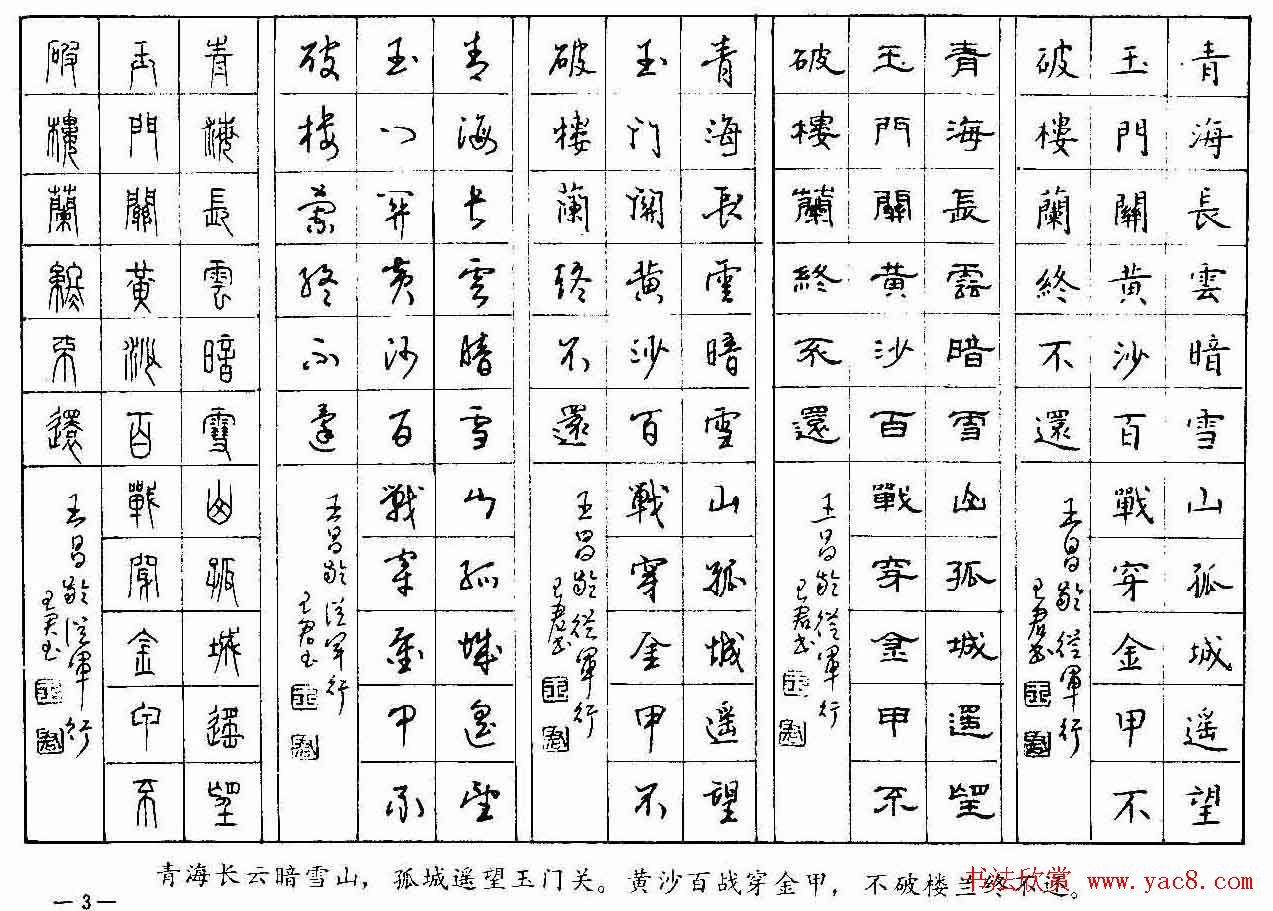 青海長雲暗雪山孤城遥望
玉門關黄沙百戰穿金甲不
破樓蘭終不還
王昌齡從軍行
王君书
青海長雲暗雪山孤城遥望
玉門關黄沙百戰穿金甲不
破樓蘭終不還
王昌齡從軍行
王君书
青海長雲暗雪山孤城遥望
玉门關黄沙百戰穿金甲不
破楼蘭終不還
王昌齡從軍行
王君书
青海长雲暗雪山孤城遥望
玉门关黄沙百戰穿金甲不
破楼蘭終不還
王昌齡從軍行
王君书
青海長雲暗雪山孤城遥望
玉門關黄沙百戰穿金甲不
破樓蘭終不還
王昌齡從軍行
王君书
青海长云暗雪山，孤城遥望玉门关。黄沙百战穿金甲，不破楼兰终不还。
书法欣赏 www.yac8.com
—3—